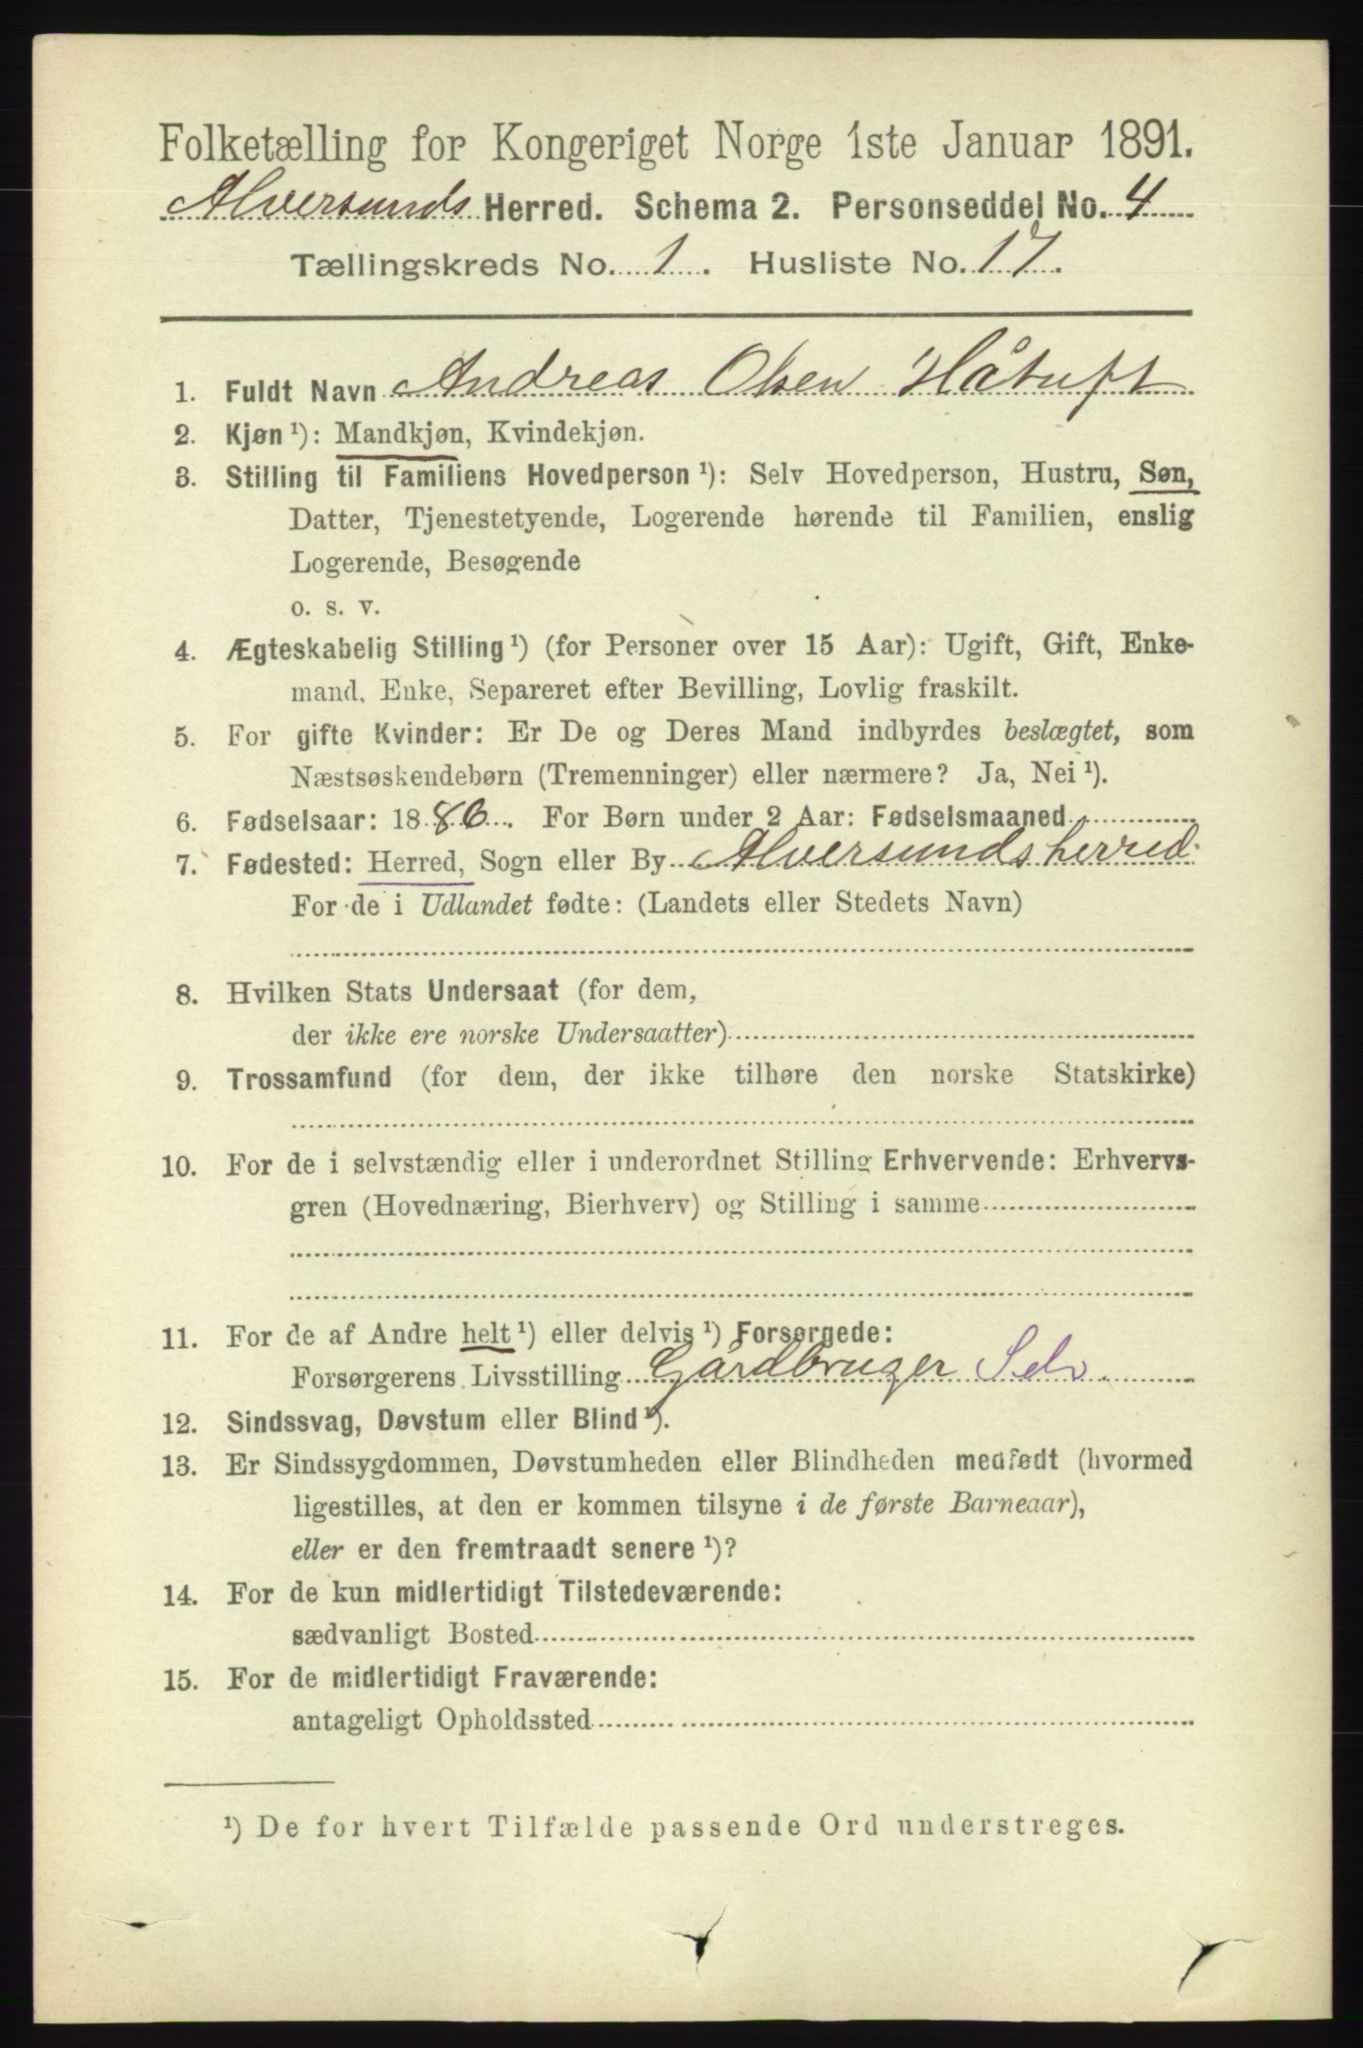 Folketælling for Kongeriget Norge 1ste Januar 1891.
Alversunds Herred. Schema 2. Personseddel No. 4
Tællingskreds No. 1. Husliste No. 17.
1. Fuldt Navn Andreas Olsen Håtuft
2. Kjøn ¹): Mandkjøn, Kvindekjøn.
3. Stilling til Familiens Hovedperson ¹): Selv Hovedperson, Hustru, Søn,
Datter, Tjenestetyende, Logerende hørende til Familien, enslig
Logerende, Besøgende
o. s. v.
4. Ægteskabelig Stilling ¹) (for Personer over 15 Aar): Ugift, Gift, Enke-
mand, Enke, Separeret efter Bevilling, Lovlig fraskilt.
5. For gifte Kvinder: Er De og Deres Mand indbyrdes beslægtet, som
Næstsøskendebørn (Tremenninger) eller nærmere? Ja, Nei ¹).
6. Fødselsaar: 1886. For Børn under 2 Aar: Fødselsmaaned
7. Fødested: Herred, Sogn eller By Alversundsherred
For de i Udlandet fødte: (Landets eller Stedets Navn)
8. Hvilken Stats Undersaat (for dem,
der ikke ere norske Undersaatter)
9. Trossamfund (for dem, der ikke tilhøre den norske Statskirke)
10. For de i selvstændig eller i underordnet Stilling Erhvervende: Erhvervs-
gren (Hovednæring, Bierhverv) og Stilling i samme
11. For de af Andre helt ¹) eller delvis ¹) Forsørgede:
Forsørgerens Livsstilling Gårdbruger Selv.
12. Sindssvag, Døvstum eller Blind ¹).
13. Er Sindssygdommen, Døvstumheden eller Blindheden medfødt (hvormed
ligestilles, at den er kommen tilsyne i de første Barneaar),
eller er den fremtraadt senere ¹)?
14. For de kun midlertidigt Tilstedeværende:
sædvanligt Bosted
15. For de midlertidigt Fraværende:
antageligt Opholdssted
¹) De for hvert Tilfælde passende Ord understreges.